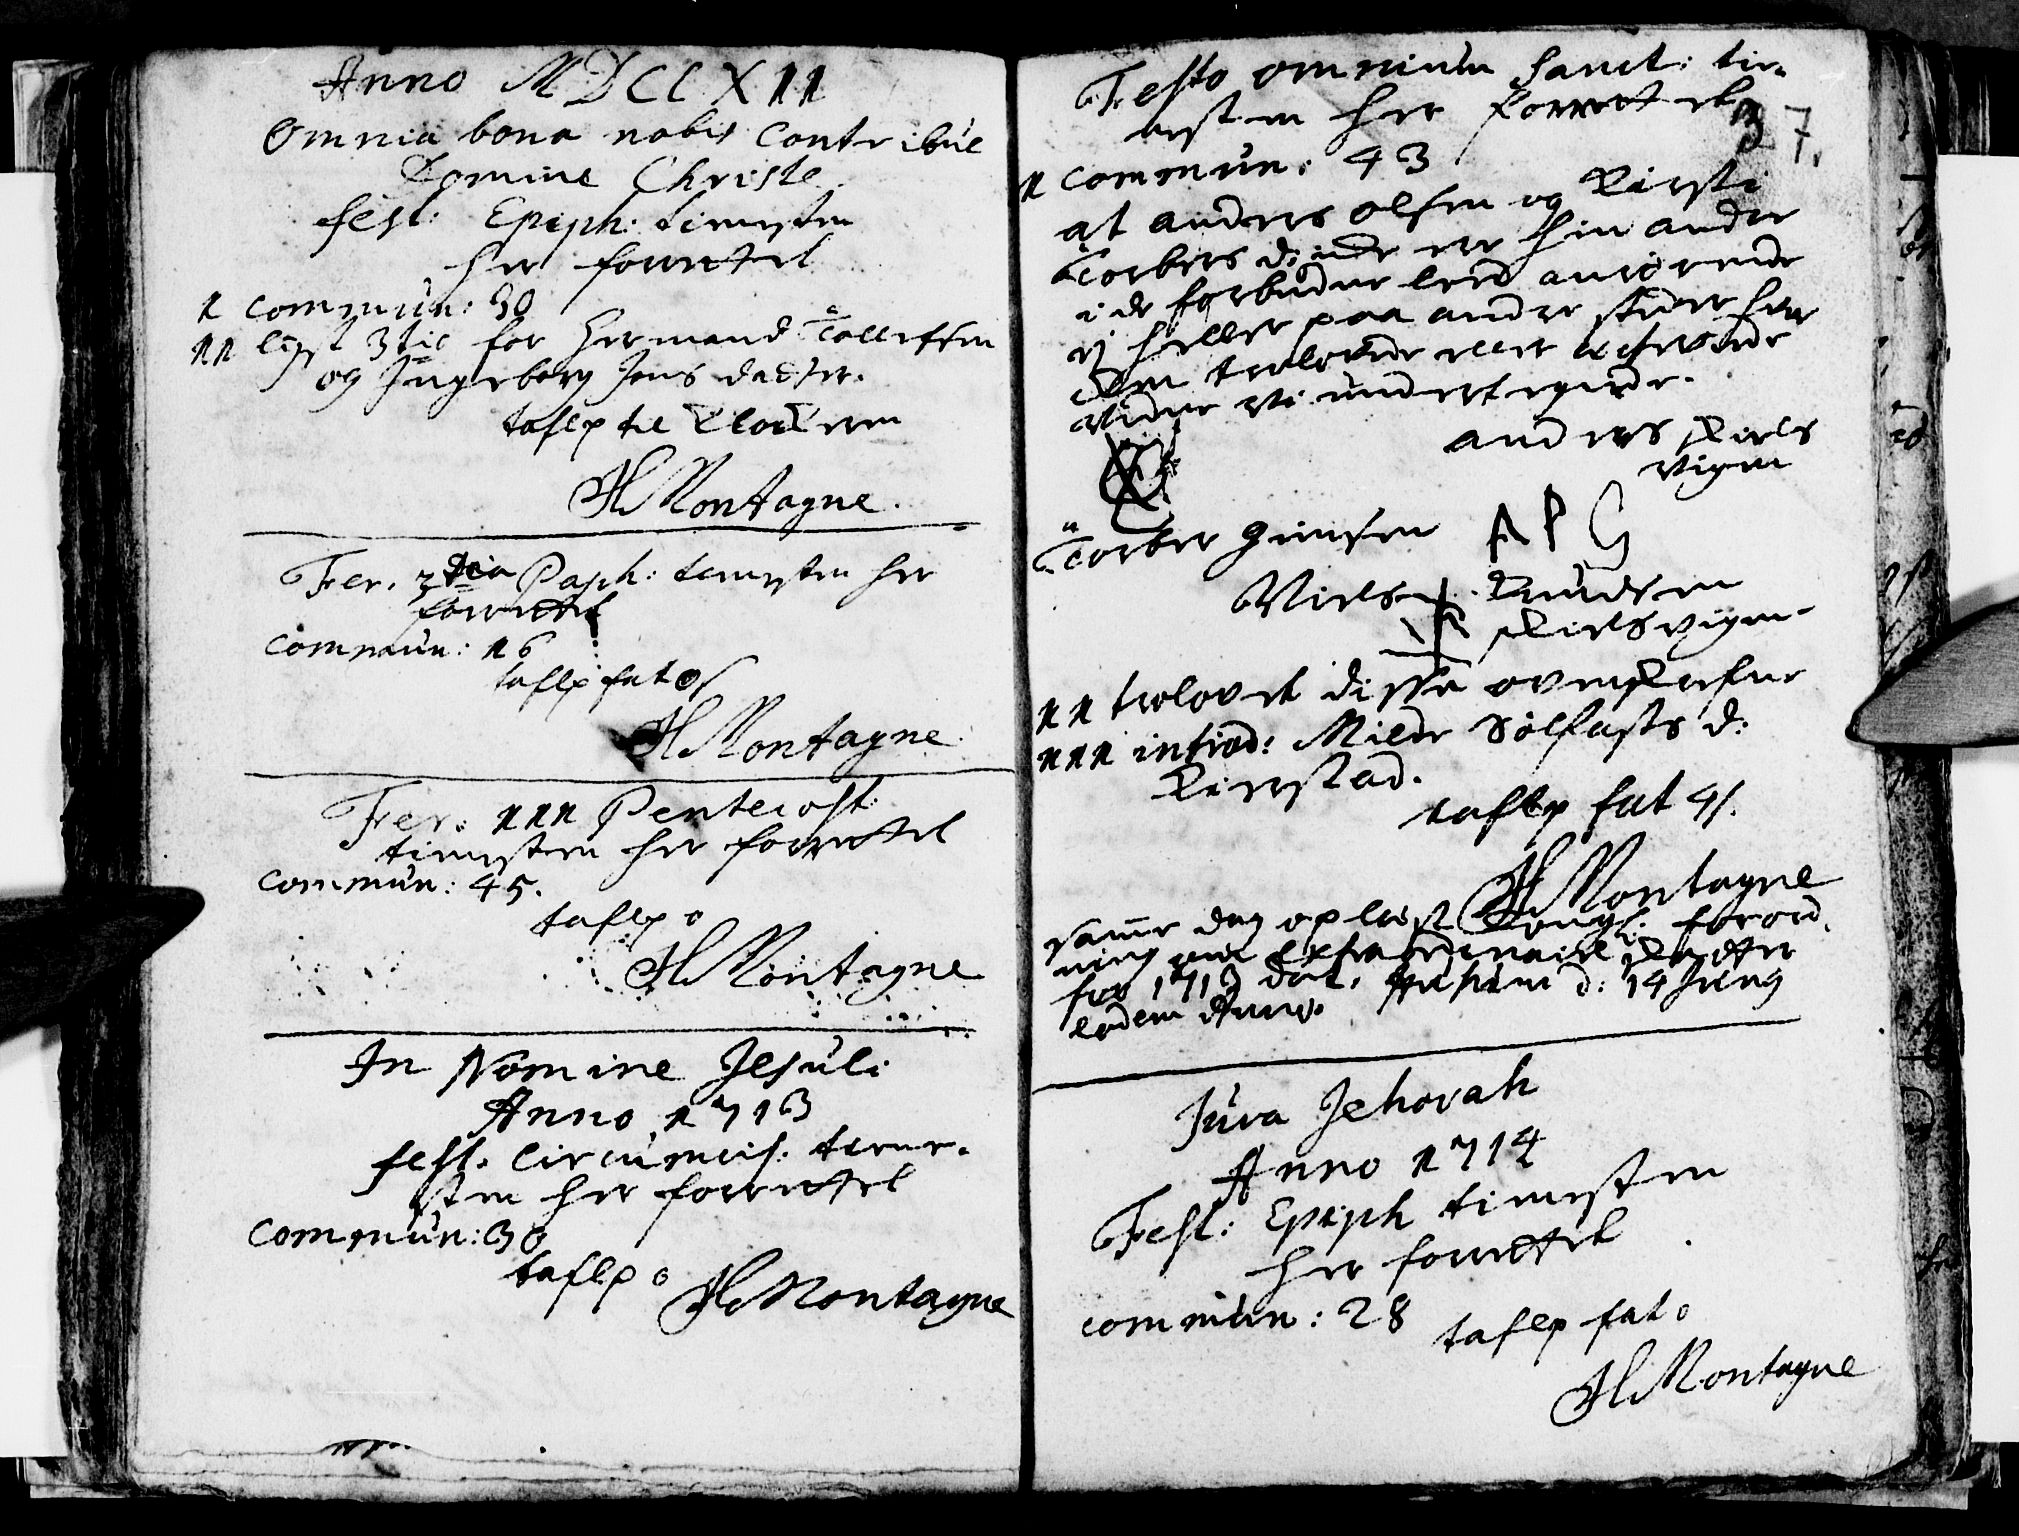 Anno MDCCXII
Omnia bona nobis Contribue
Domine Christe
fest: Epiph: tienesten
her forrettet
1 commun: 30
11 lyst 3tie for Hermand Tollefsen
og Ingeborg Jens datter.
taflp til Klockeren
HMontagne.
Fer. 3tia Pasch: tienesten her
forrettet
commun: 16
taflp fat 0
HMontagne
Fer: 111 Pentecost:
tienesten her forrettet
commun: 45.
taflp 0
HMontagne
In Nomine Jesuli
Anno 1713
fest. Circumcis: tiene-
sten her forrettet
commun: 30
taflp 0
HMontagne
37.
Festo omnium Sanct: tie-
nesten her forrettet
1 commun: 43
at anders olsen og Kirsti
Torbers d: icke ere hin anden
i de forbudne leed anrørende
ej heller paa andre steder har
dem trolovede eller ecteviede
vidner vi underteignede.
anders Kiels
vigen
Torber gunsen A P G
Niels Knudsen
Kielsvigen
11 trolovet disse ovenskrefne
111 introd: Milde Solfasts d:
Kirrstad.
taflp fat 4 s.
HMontagne
samme dag oplæst Kongl: forord.
ning om Extraordinaire skatter
for 1713 dat. Husum d: 14 Juny
eodem Anno.
Juva Jehovah
Anno 1714
Fest: Epiph tienesten
her forrettet
commun: 28
taflp fat 0
HMontagne